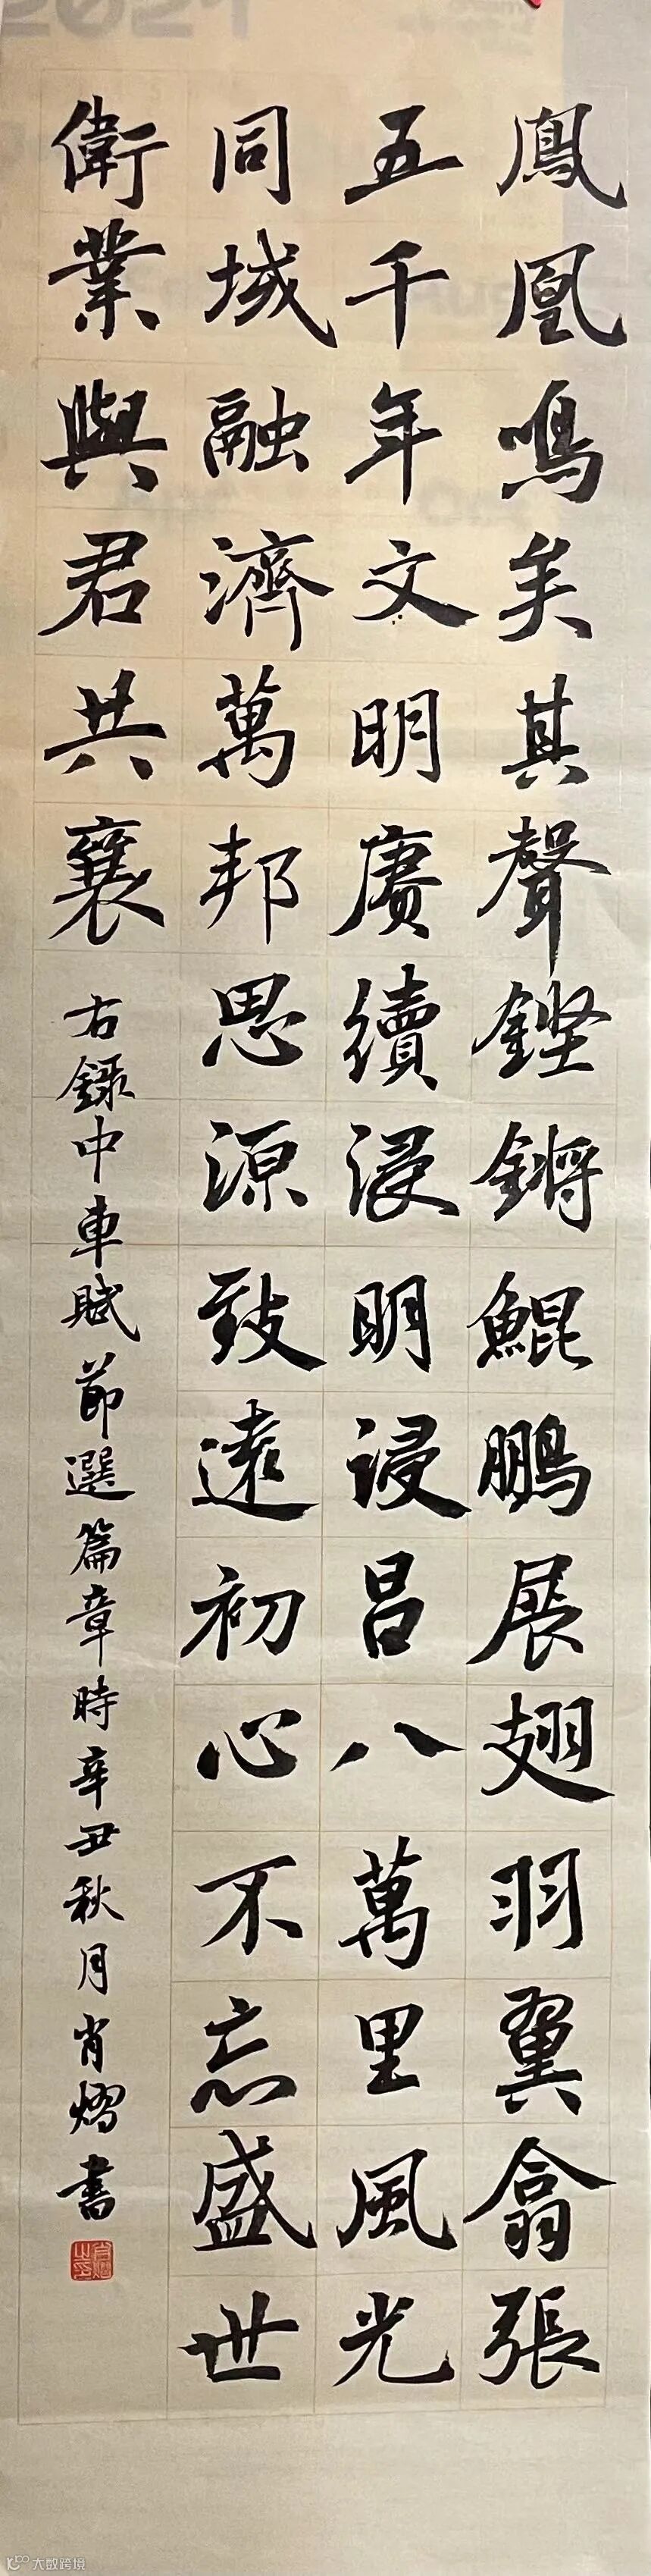 鳳凰鳴矣其聲鏗鏘鯤鵬展翅羽翼翕張
五千年文明賡續浸明浸昌八萬里風光
同域融濟萬邦思源致遠初心不忘盛世
偉業與君共襄
右錄中車賦節選篇章時辛丑秋月肖熠書
大数跨境